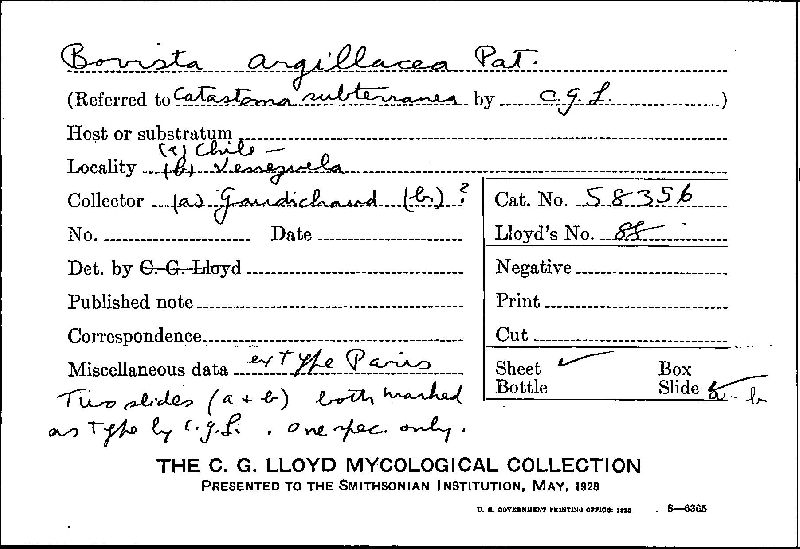 Bovista argillacea Pat.
(Referred to Catastoma subterranea by C.G.L.)
Host or substratum
(a) Chile -
Locality (b) Venezuela
Collector (a) Gaudichaud (b) ?
Cat. No. 58356
No. Date
Lloyd's No. 88
Det. by C. G. Lloyd
Negative
Published note
Print
Correspondence
Cut
Miscellaneous data ex type Paris
Sheet ✓ Box
Bottle Slide a - b
Two slides (a + b) both marked
as type by C.G.L. . one spec. only.
THE C. G. LLOYD MYCOLOGICAL COLLECTION
PRESENTED TO THE SMITHSONIAN INSTITUTION, MAY, 1928
U. S. GOVERNMENT PRINTING OFFICE: 1928 8—6365